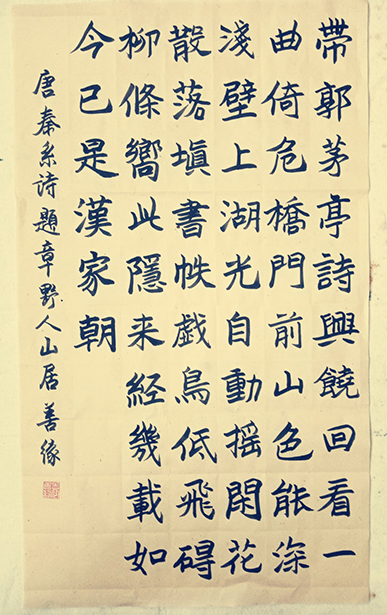 帶郭茅亭詩興饒回看一
曲倚危橋門前山色能深
淺壁上湖光自動摇閑花
散落填書帙戯鳥低飛碍
柳條嚮此隱来経幾載如
今已是漢家朝
唐秦系詩題章野人山居 善缘